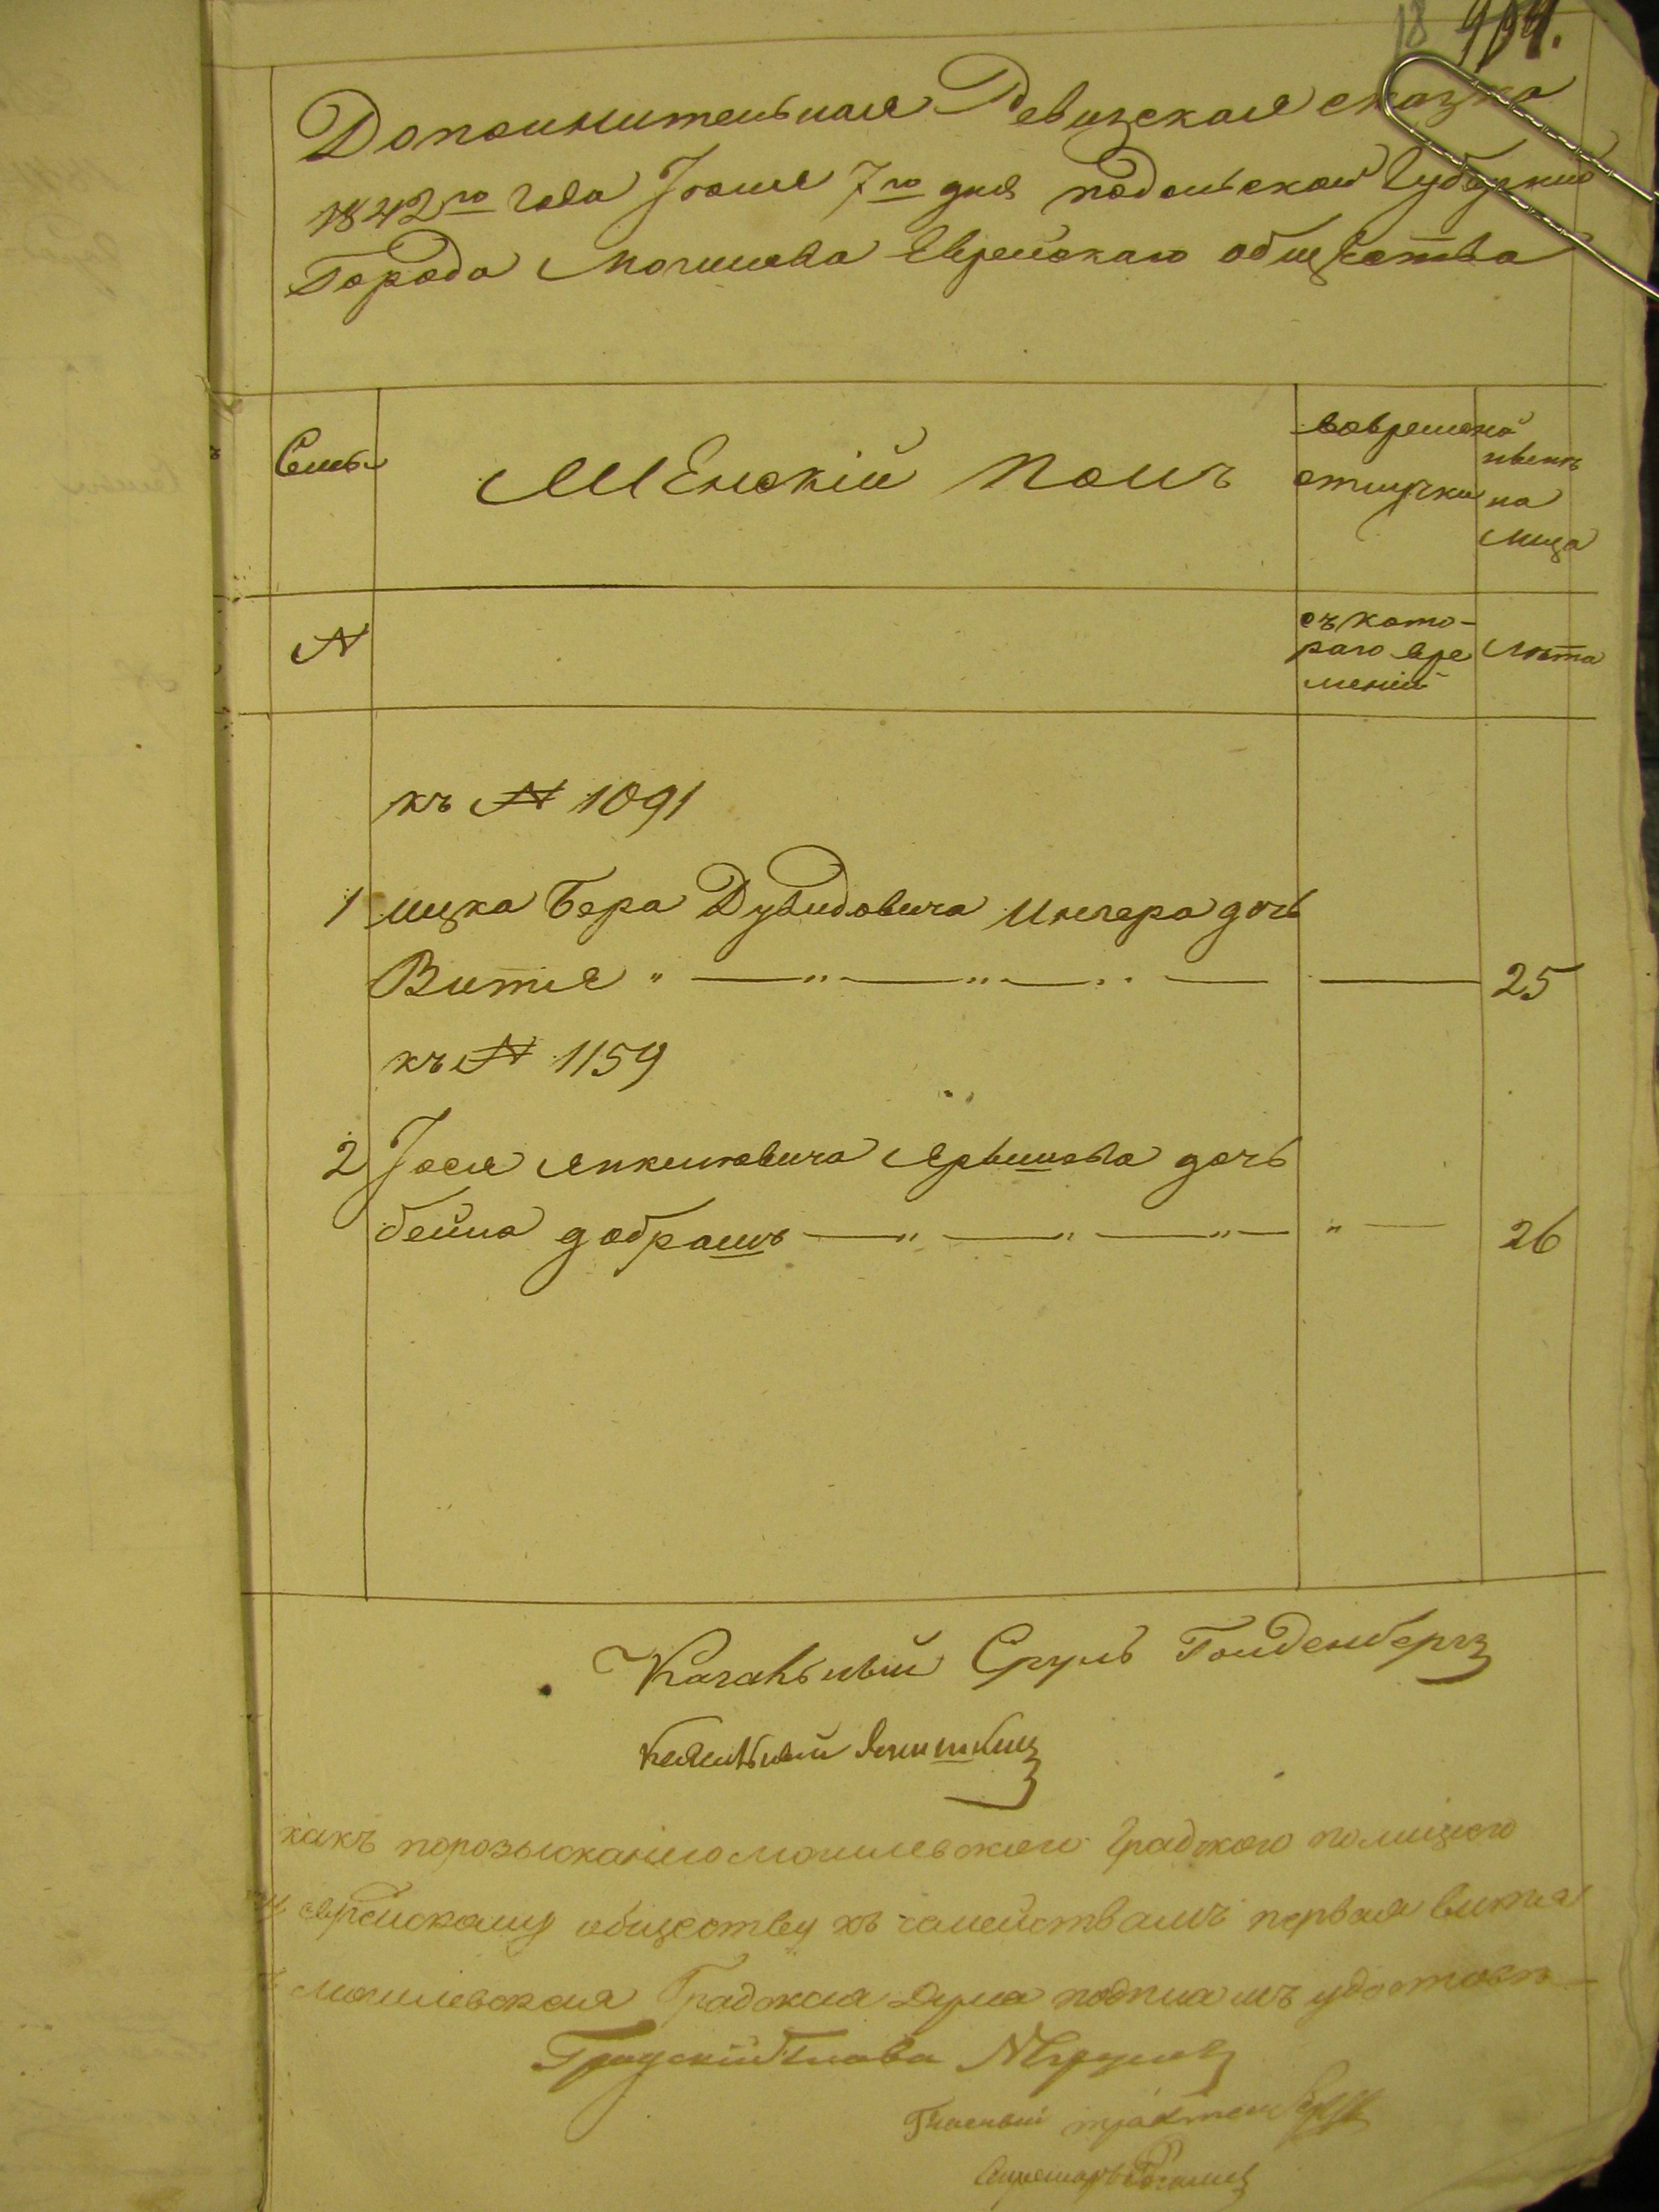 Дополнительная Ревизская сказка
1842го года Іюня 7го дня подольской Губерніи
Города Могилева Еврейскаго общества
Семьи
Женскій полъ
вовременной
отлучки
нынѣ
на
лица
N
съ кото-
раго вре
мений
Лѣта
къ N 1091
1 ицка Бера Дувидовича Ингера дочь
Витя " — " — " — " — — 25
къ N 1159
2 Іося Янкелювича Ярышова дочь
бейла добрашъ — " — " — " — " — 26
Кагальный Сруль Голденбергъ
Кагальный
какъ порозысканію могилевскаго Градского полицією
еврейскому обществу къ семействамъ первая витя
могилевская Градская Дума подписомъ удостовѣ-
Градскій Глава
Гласный
Секретарь